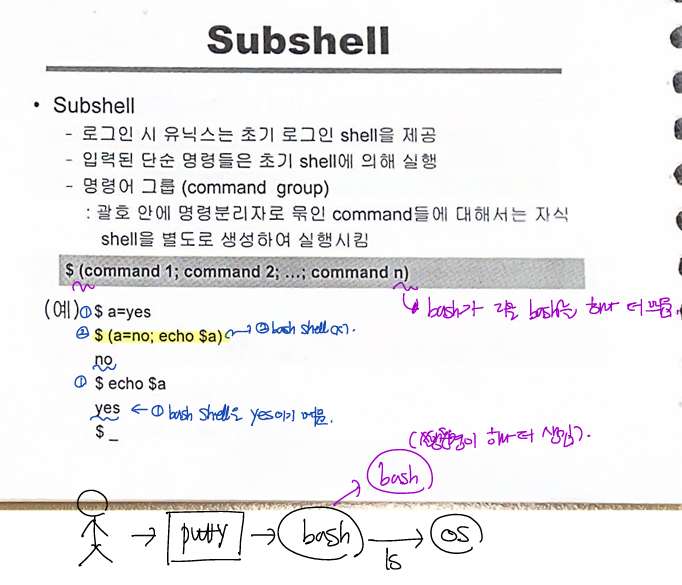 Subshell
• Subshell
- 로그인 시 유닉스는 초기 로그인 shell을 제공
- 입력된 단순 명령들은 초기 shell에 의해 실행
- 명령어 그룹 (command group)
: 괄호 안에 명령분리자로 묶인 command들에 대해서는 자식
shell을 별도로 생성하여 실행시킴
$ (command 1; command 2; ...; command n)
bash가 다른 bash를 하나 더
(예) ① $ a=yes
② $ (a=no; echo $a) ② bash shell
no
① $ echo $a
yes ← ① bash shell은 yes이기 때문.
$ _
이 하나 더
bash
putty → bash → os
ls